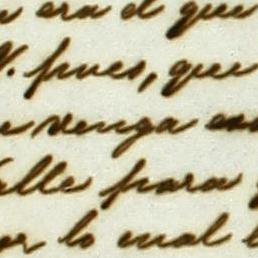 era el que
V. pues, que
venga
alle para
lo cual